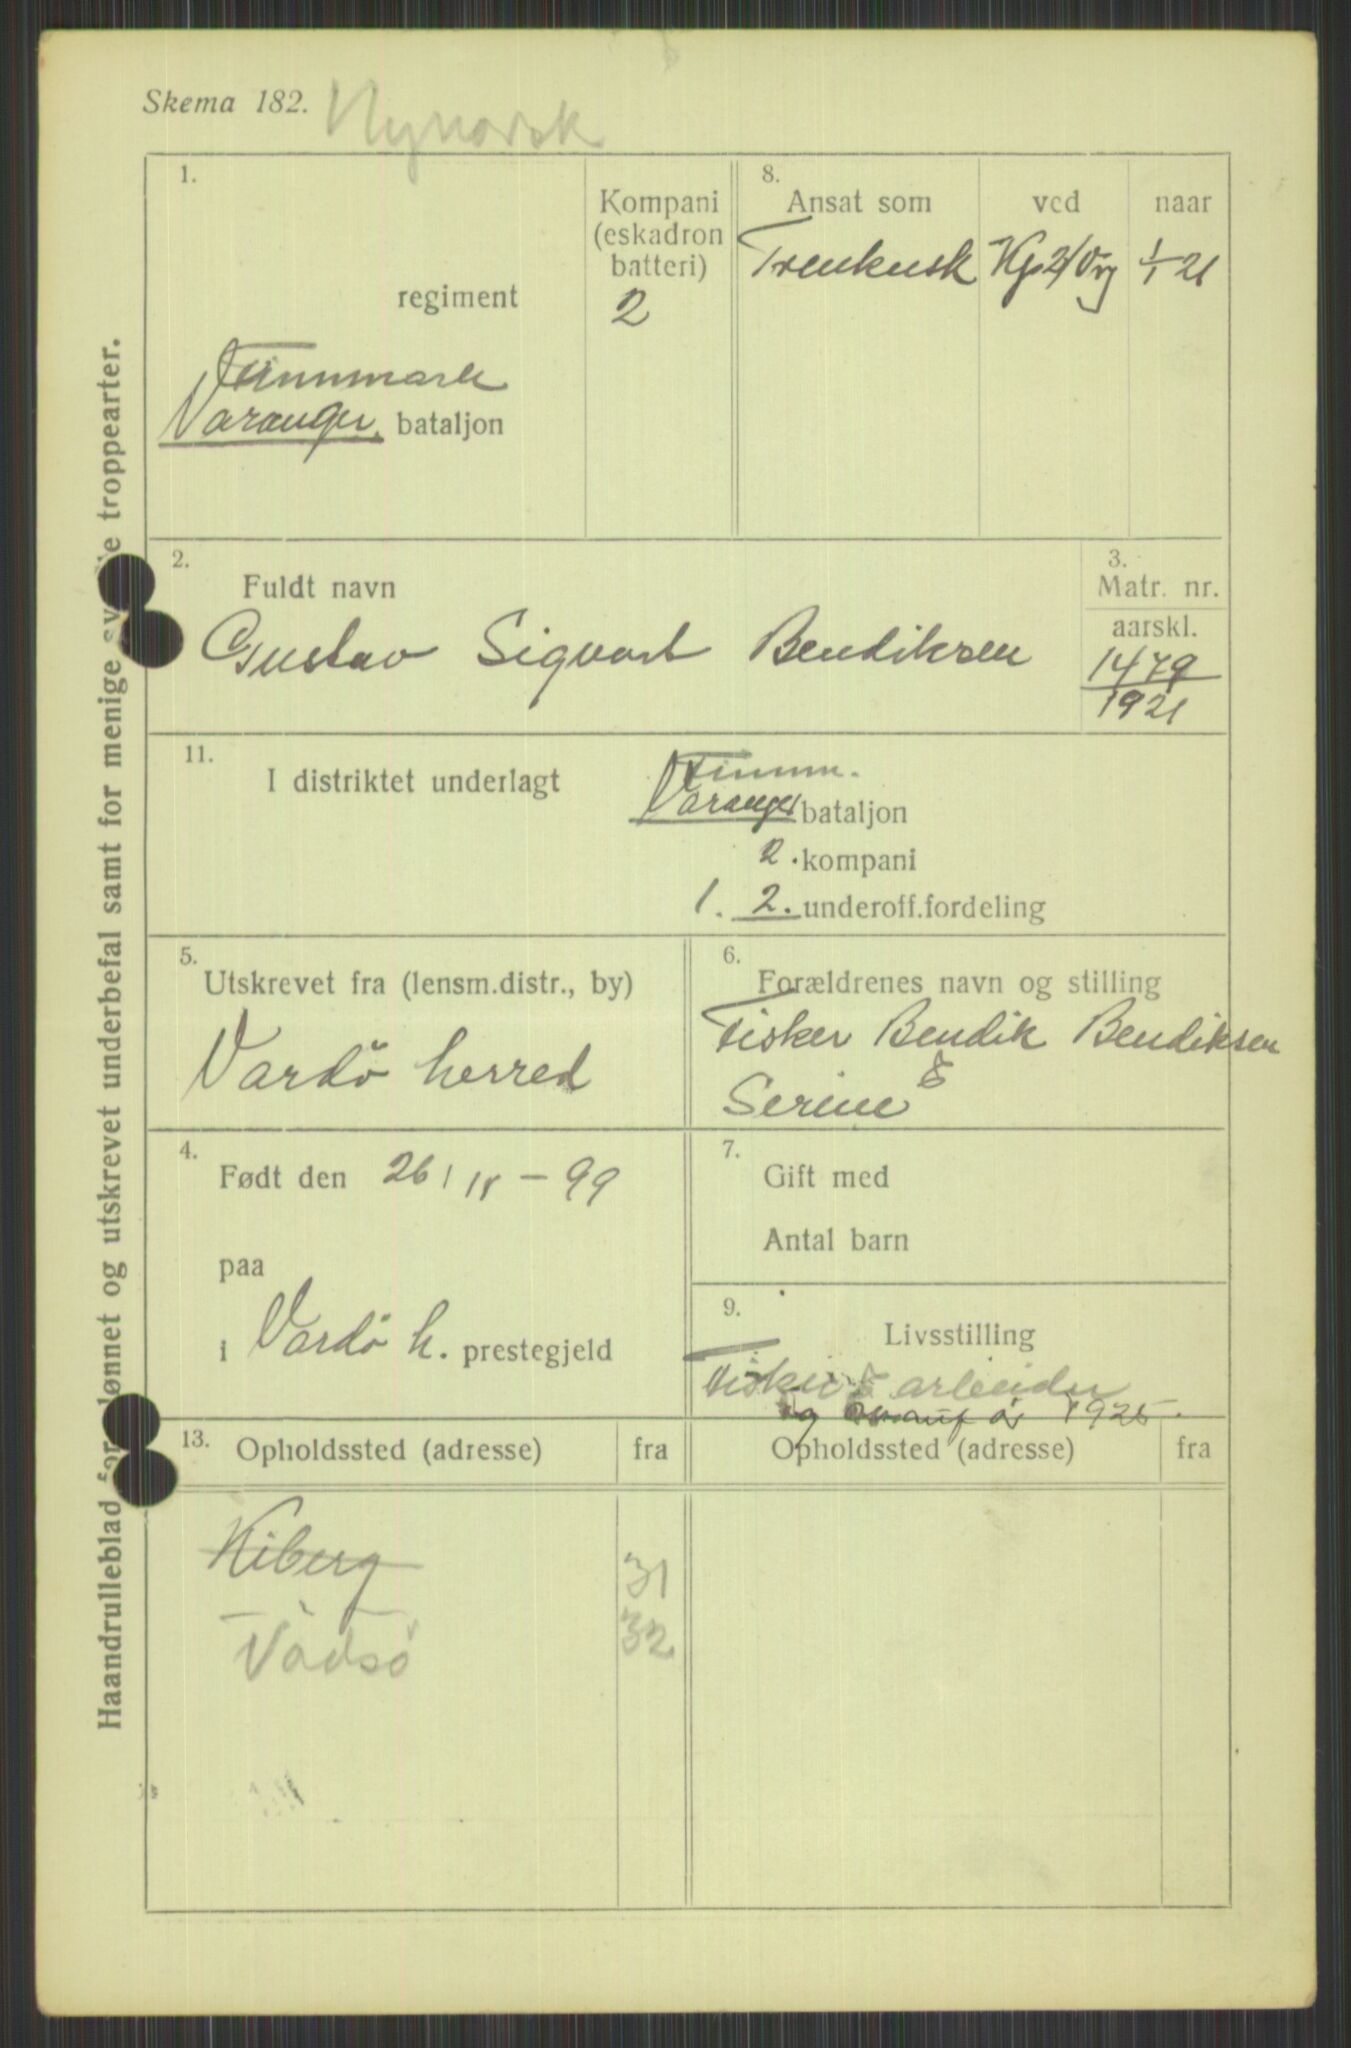 Skema 182. Nynorsk
Haandrulleblad for lønnet og utskrevet underbefal samt for menige troppearter.
1.
regiment
Finnmark
Varanger bataljon
Kompani
(eskadron
batteri)
2
8.
Ansat som ved naar
Trenkusk Kp2/Vrg 1/1 21
2.
Fuldt navn
Gustav Sigvart Bendiksen
3.
Matr. nr.
aarskl.
1479
1921
11.
I distriktet underlagt
Finnm.
Varanger bataljon
2. kompani
1. 2. underoff.fordeling
5.
Utskrevet fra (lensm.distr., by)
Vardö herred
6.
Forældrenes navn og stilling
Fisker Bendik Bendiksen
&
Serine
4.
Født den 26/ - 99
paa
i Vardö h. prestegjeld
7.
Gift med
Antal barn
9.
Livsstilling
Fisker & arbeider
og 1925.
13.
Opholdssted (adresse) fra
Kiberg 31
Vadsö 32
Opholdssted (adresse) fra